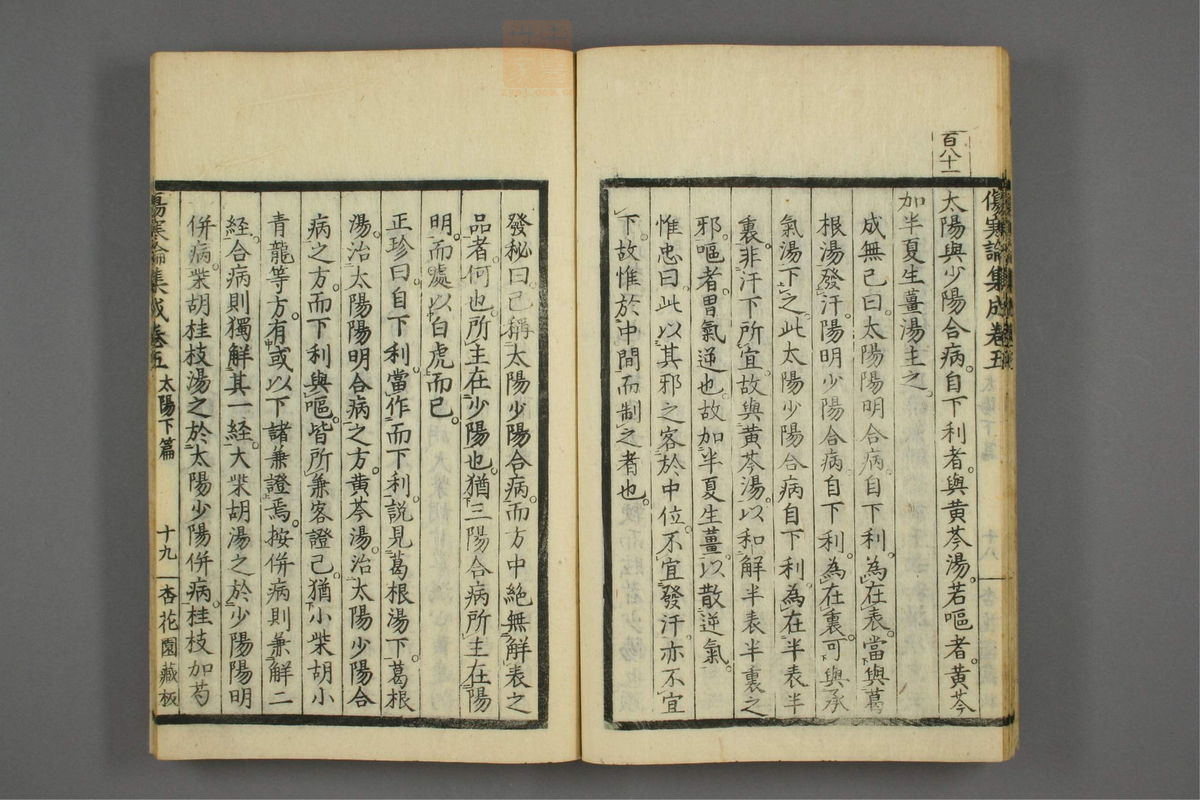 百八十一
傷寒論集成卷五
太陽與少陽合病自下利者與黃芩湯若嘔者黃芩
加半夏生薑湯主之
成無己曰太陽陽明合病自下利為在表當與葛
根湯發汗陽明少陽合病自下利為在裏可與承
氣湯下之此太陽少陽合病自下利為在半表半
裏非汗下所宜故與黃芩湯以和解半表半裏之
邪嘔者胃氣逆也故加半夏生薑以散逆氣
惟忠曰此以其邪之客於中位不宜發汗亦不宜
下故惟於中間而制之者也
發秘曰已稱太陽少陽合病而方中絕無解表之
品者何也所主在少陽也猶三陽合病所主在陽
明而處以白虎而已
正珍曰自下利當作而下利說見葛根湯下葛根
湯治太陽陽明合病之方黃芩湯治太陽少陽合
病之方而下利與嘔皆所兼客證已猶小柴胡小
青龍等方有或以下諸兼證焉按併病則兼解二
經合病則獨解其一經大柴胡湯之於少陽陽明
併病柴胡桂枝湯之於太陽少陽併病桂枝加芍
傷寒論集成卷五 太陽下篇 十九 杏花園藏板